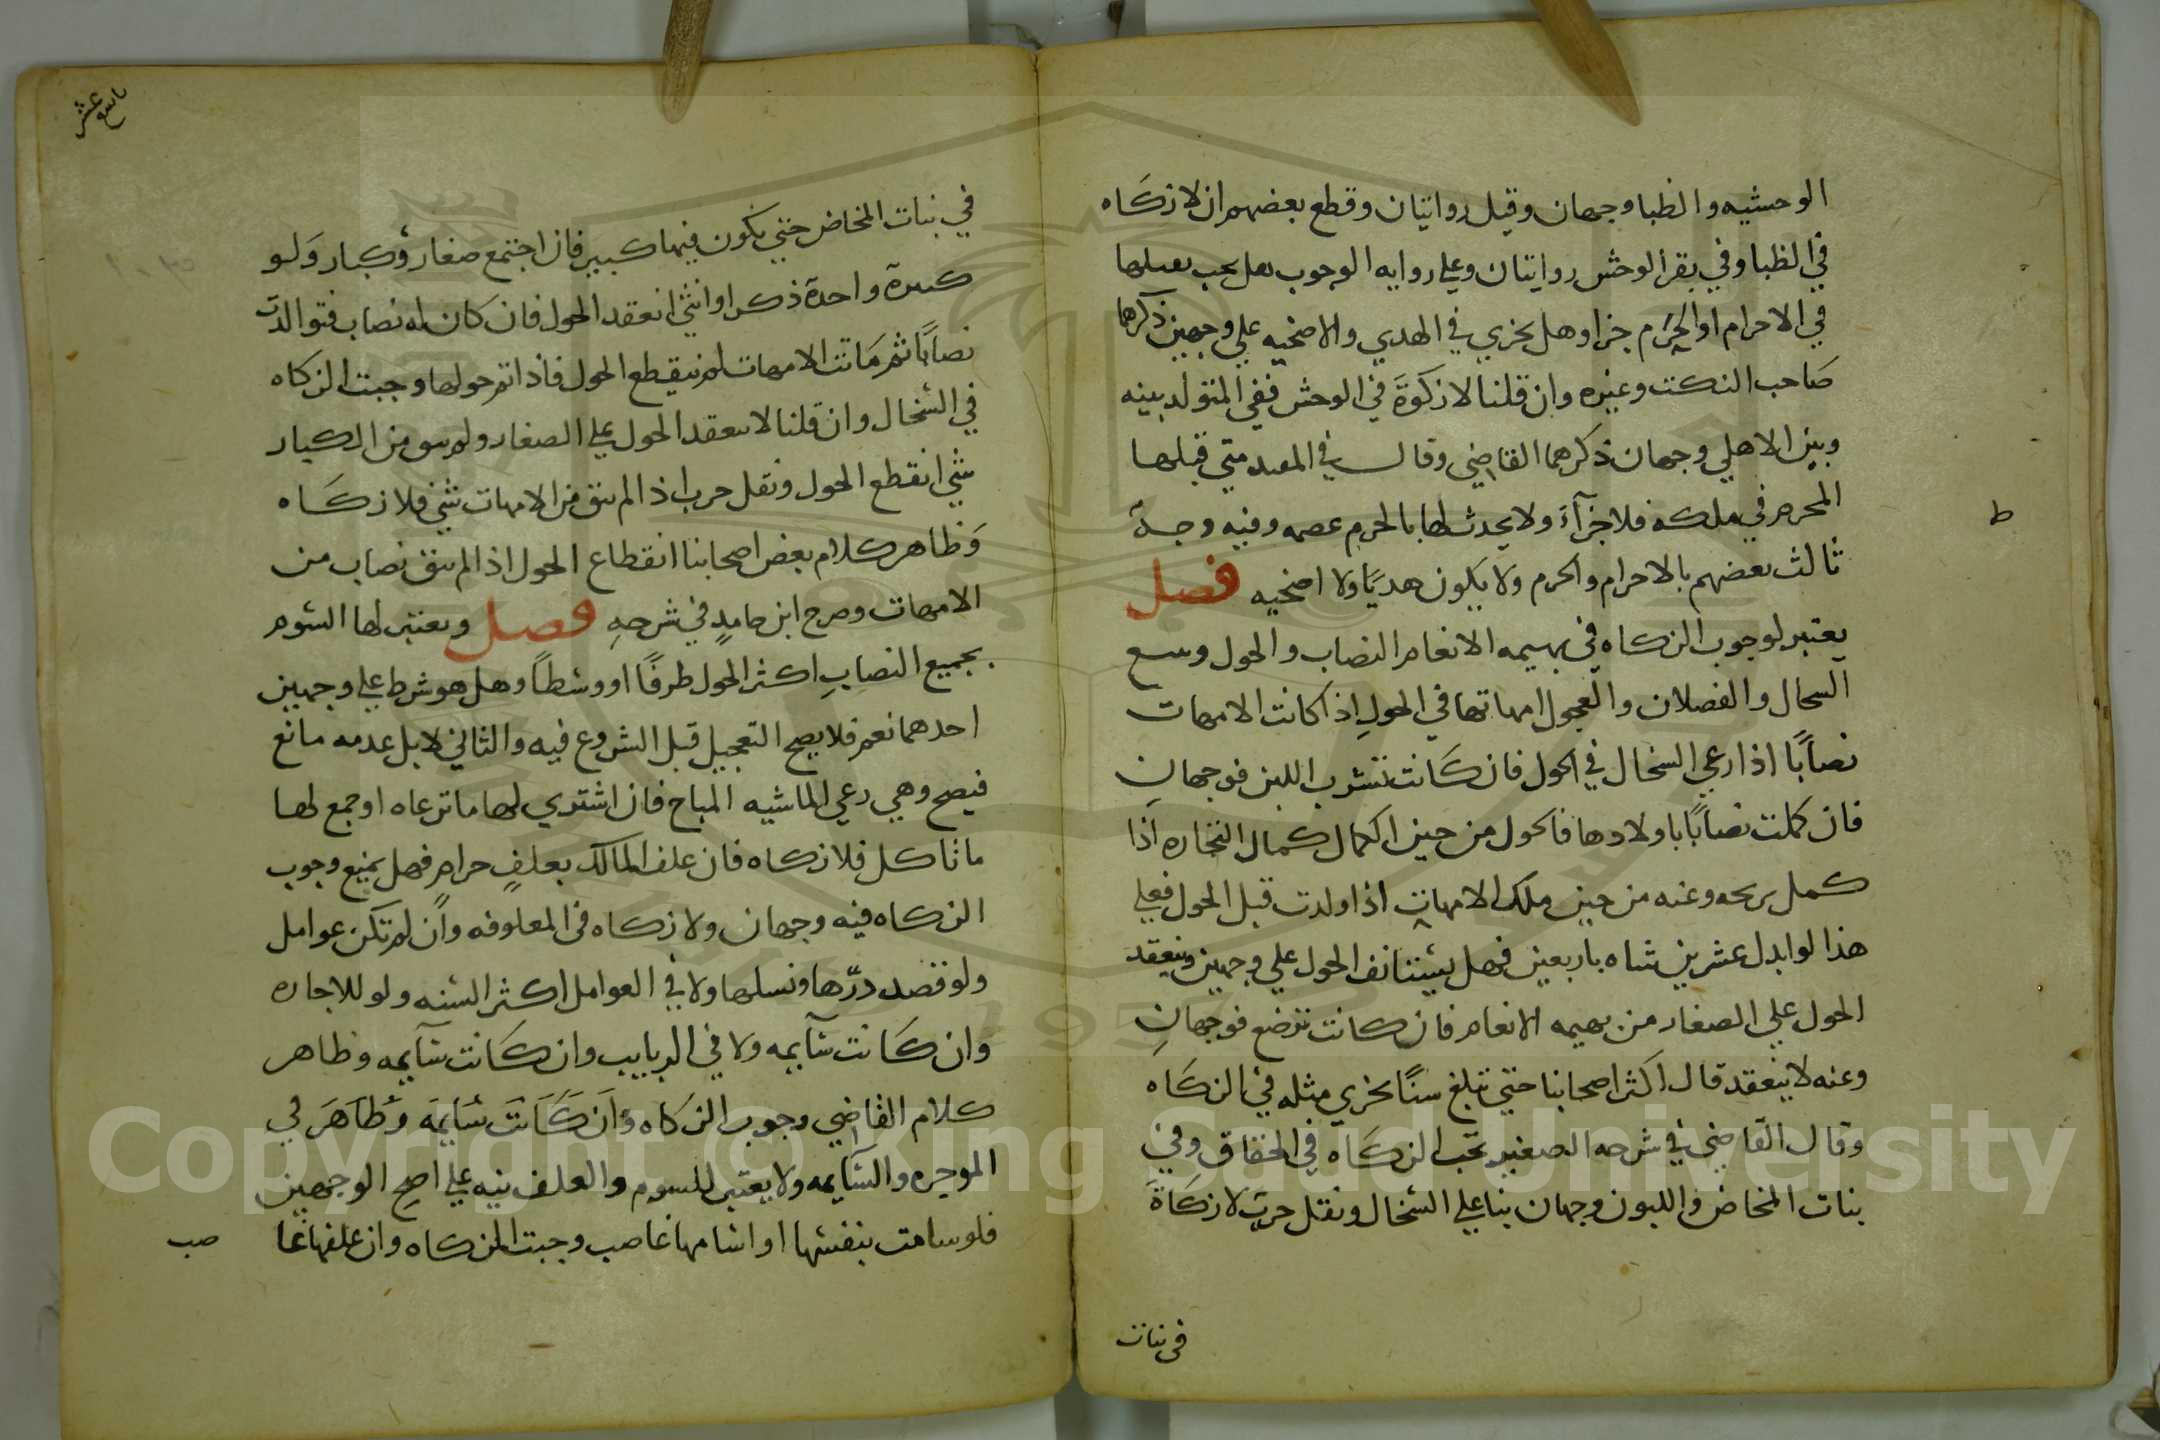 الوحشيه والظبا وجهان وقيل روايتان وقطع بعضهم ان لا زكاه
في الظبا وفي بقر الوحش روايتان وعلي روايه الوجوب هل يجب بقتلها
في الاحرام او الحرم جزا وهل يجزي في الهدي والاضحيه علي وجهين ذكرهما
صاحب النكت وغيره وان قلنا لا زكوة في الوحش ففي المتولد بينه
وبين الاهلي وجهان ذكرهما القاضي وقال في المفيد متي قتلها
المحرم في ملكه فلا جزآء ولا يحدث لها بالحرم عصمه وفيه وجه
ثالث بعضهم بالاحرام والحرم ولا يكون هديا ولا اضحيه فصل
يعتبر لوجوب الزكاه في بهيمه الانعام النصاب والحول وتتبع
السخال والفصلان والعجول امهاتها في الحول اذا كانت الامهات
نصابًا اذا رعي السخال في الحول فان كانت تشرب اللبن فوجهان
فان كملت نصابًا باولادها فالحول من حين الكمال كمال التجاره اذا
كمل بربحه وعنه من حين ملك الامهات اذا ولدت قبل الحول فعلي
هذا لو ابدل عشرين شاه باربعين فهل يستانف الحول علي وجهين وينعقد
الحول علي الصغار من بهيمه الانعام فان كانت ترضع فوجهان
وعنه لا ينعقد قال اكثر اصحابنا حتي تبلغ سنًا يجزي مثله في الزكاه
وقال القاضي في شرحه الصغير تجب الزكاه في الحقاق وفي
بنات المخاض واللبون وجهان بنا علي السخال ونقل حرب لا زكاة
في بنات
ط
تاسع عشر
في بنات المخاض حتي يكون فيها كبير فان اجتمع صغار وكبار ولو
كبيرة واحدة ذكر او انثي انعقد الحول فان كان له نصاب فتوالدت
نصابًا ثم ماتت الامهات لم ينقطع الحول فاذا تم حولها وجبت الزكاه
في السخال وان قلنا لا ينعقد الحول علي الصغار ولم يبق من الكبار
شي انقطع الحول ونقل حرب اذا لم يبق من الامهات شي فلا زكاه
وظاهر كلام بعض اصحابنا انقطاع الحول اذا لم يبق نصاب من
الامهات وصرح ابن حامد في شرحه فصل ويعتبر لها السوم
بجميع النصاب اكثر الحول طرفًا او وسطًا وهل هو شرط علي وجهين
احدهما نعم فلا يصح التعجيل قبل الشروع فيه والثاني لا بل عدمه مانع
فيصح وهي رعي الماشيه المباح فان اشتري لها ما ترعاه او جمع لها
ما تاكل فلا زكاه فان علف المالك بعلف حرام فهل يمنع وجوب
الزكاه فيه وجهان ولا زكاه في المعلوفه وان لم تكن عوامل
ولو قصد درّها ونسلها ولا في العوامل اكثر السنه ولو للاجاره
وان كانت سآيمه ولا في الربايب وان كانت سآيمه وظاهر
كلام القاضي وجوب الزكاه وان كانت سايمه وظاهر في
الموجره والسآيمه ولا يعتبر للسوم والعلف نيه علي اصح الوجهين
فلو سامت بنفسها او اسامها غاصب وجبت الزكاه وان علفها غا
صب
Copyright © King Saud University